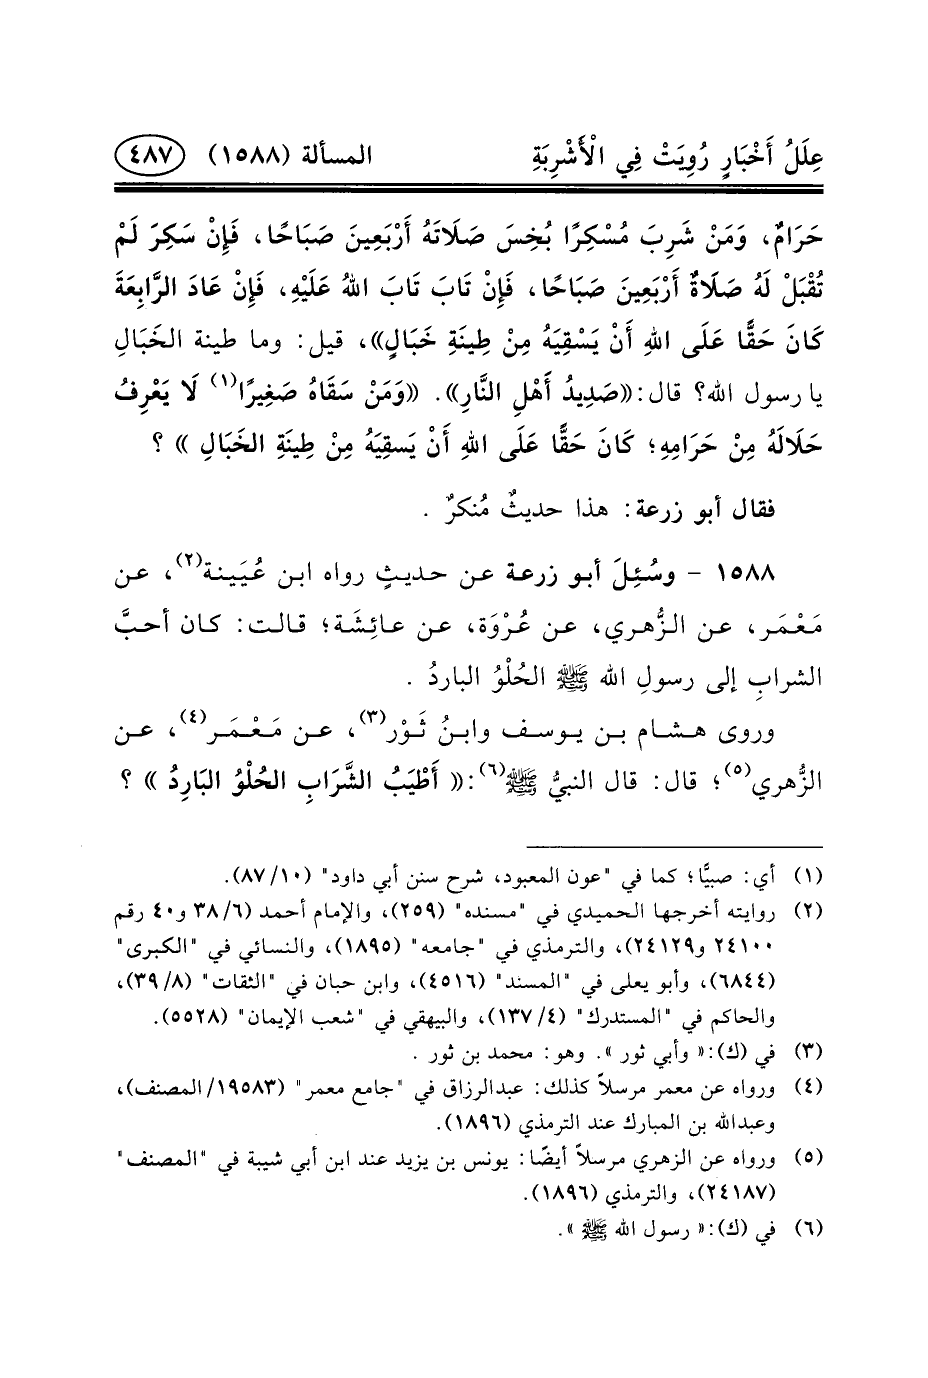 عِلَلُ أَخْبَارٍ رُوِيَتْ فِي الْأَشْرِبَةِ المسألة (١٥٨٨) ٤٨٧
حَرَامٌ، وَمَنْ شَرِبَ مُسْكِرًا بُخِسَ صَلَاتَهُ أَرْبَعِينَ صَبَاحًا، فَإِنْ سَكِرَ لَمْ
تُقْبَلْ لَهُ صَلَاةٌ أَرْبَعِينَ صَبَاحًا، فَإِنْ تَابَ تَابَ اللهُ عَلَيْهِ، فَإِنْ عَادَ الرَّابِعَةَ
كَانَ حَقًّا عَلَى اللهِ أَنْ يَسْقِيَهُ مِنْ طِينَةِ خَبَالٍ»، قيل: وما طينة الخَبَالِ
يا رسول الله؟ قال: «صَدِيدُ أَهْلِ النَّارِ». «وَمَنْ سَقَاهُ صَغِيرًا(١) لَا يَعْرِفُ
حَلَالَهُ مِنْ حَرَامِهِ؛ كَانَ حَقًّا عَلَى اللهِ أَنْ يَسقِيَهُ مِنْ طِينَةِ الخَبَالِ » ؟
فقال أبو زرعة: هذا حديثٌ مُنكرٌ .
١٥٨٨ - وسُئِلَ أبو زرعة عن حديثٍ رواه ابن عُيَينة(٢)، عن
مَعْمَر، عن الزُّهري، عن عُرْوَة، عن عائِشَة؛ قالت: كان أحبَّ
الشرابِ إلى رسولِ الله ﷺ الحُلْوُ الباردُ .
وروى هشام بن يوسف وابنُ ثَوْر(٣)، عن مَعْمَر(٤)، عن
الزُّهري(٥)؛ قال: قال النبيُّ ﷺ(٦): « أَطْيَبُ الشَّرَابِ الحُلْوُ البَارِدُ » ؟
(١) أي: صبيًّا؛ كما في "عون المعبود، شرح سنن أبي داود" (٨٧/١٠).
(٢) روايته أخرجها الحميدي في "مسنده" (٢٥٩)، والإمام أحمد (٣٨/٦ و٤٠ رقم
٢٤١٠٠ و٢٤١٢٩)، والترمذي في "جامعه" (١٨٩٥)، والنسائي في "الكبرى"
(٦٨٤٤)، وأبو يعلى في "المسند" (٤٥١٦)، وابن حبان في "الثقات" (٣٩/٨)،
والحاكم في "المستدرك" (١٣٧/٤)، والبيهقي في "شعب الإيمان" (٥٥٢٨).
(٣) في (ك): « وأبي ثور ». وهو: محمد بن ثور .
(٤) ورواه عن معمر مرسلاً كذلك: عبدالرزاق في "جامع معمر" (١٩٥٨٣/المصنف)،
وعبدالله بن المبارك عند الترمذي (١٨٩٦).
(٥) ورواه عن الزهري مرسلاً أيضًا: يونس بن يزيد عند ابن أبي شيبة في "المصنف"
(٢٤١٨٧)، والترمذي (١٨٩٦).
(٦) في (ك): « رسول الله ﷺ ».